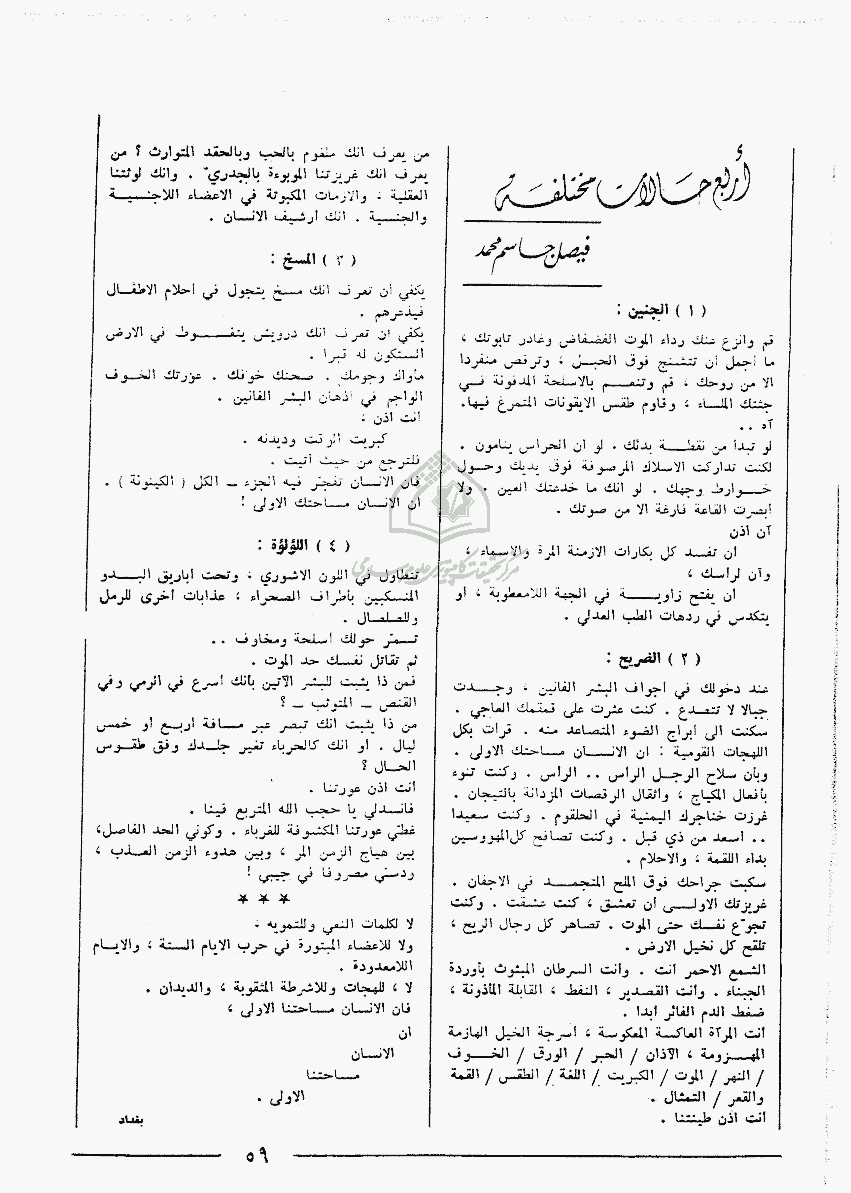 أربع حالات مختلفة
فيصل جاسم محمد
( ١ ) الجنين :
قم وانزع عنك رداء الموت الفضفاض وغادر تابوتك ،
ما أجمل أن تتشنج فوق الحبل ، وترقص منفردا
الا من روحك ، قم وتنعم بالاسلحة المدفونة في
جثتك الملساء ، وقاوم طقس الايقونات المتمرغ فيها.
آه ..
لو تبدأ من نقطة بدئك . لو ان الحراس ينامون .
لكنت تداركت الاسلاك المرصوفة فوق يديك وحول
خوارط وجهك . لو انك ما خدعتك العين . ولا
أبصرت القاعة فارغة الا من صوتك .
آن اذن
ان تفسد كل بكارات الازمنة المرة والاسماء ،
وآن لرأسك ،
ان يفتح زاوية في الجهة اللامعطوبة ، او
يتكدس في ردهات الطب العدلي .
( ٢ ) الضريح :
عند دخولك في اجواف البشر الفانين ، وجدت
جبالا لا تتصدع . كنت عثرت على قمقمك العاجي .
سكنت الى أبراج الضوء المتصاعد منه . قرأت بكل
اللهجات القومية : ان الانسان مساحتك الاولى .
وبأن سلاح الرجل الرأس .. الرأس . وكنت تنوء
بأفعال المكياج ، وأثقال الرقصات المزدانة بالتيجان .
غرزت خناجرك اليمنية في الحلقوم . وكنت سعيدا
.. أسعد من ذي قبل . وكنت تصافح كل المهووسين
بداء اللقمة ، والاحلام .
سكبت جراحك فوق الملح المتجمد في الاجفان .
غريزتك الاولى ان تعشق ، كنت عشقت . وكنت
تجوّع نفسك حتى الموت . تصاهر كل رجال الريح ،
تلقح كل نخيل الارض .
الشمع الاحمر انت . وانت السرطان المبثوث بأوردة
الجبناء . وانت القصدير ، النفط ، القابلة المأذونة ،
ضغط الدم الفائر أبدا .
أنت المرآة العاكسة المعكوسة ، أسرجة الخيل الهازمة
المهزومة ، الآذان / الحبر / الورق / الخوف
/ النهر / الموت / الكبريت / اللغة / الطقس / القمة
والقعر / التمثال .
انت اذن طينتنا .
من يعرف انك ملغوم بالحب وبالحقد المتوارث ؟ من
يعرف انك غريزتنا الموبوءة بالجدري . وانك لوثتنا
العقلية ، والازمات المكبوتة في الاعضاء اللاجنسية
والجنسية . انك أرشيف الانسان .
( ٣ ) المسخ :
يكفي ان تعرف انك مسخ يتجول في احلام الاطفال
فيذعرهم .
يكفي ان تعرف انك درويش يتغوط في الارض
الستكون له قبرا .
مأواك وجومك . صحنك خوفك . عورتك الخوف
الواجم في اذهان البشر الفانين .
أنت اذن :
كبريت الوقت وديدنه .
فلترجع من حيث أتيت .
فان الانسان تفجّر فيه الجزء — الكل ( الكينونة ) .
ان الانسان مساحتك الاولى !
( ٤ ) اللؤلؤة :
تتطاول في اللون الاشوري ، وتحت أباريق البدو
المنسكبين بأطراف الصحراء ، عذابات اخرى للرمل
وللصلصال .
تسمّر حولك اسلحة ومخاوف ..
ثم تقاتل نفسك حد الموت .
فمن ذا يثبت للبشر الآتين بأنك أسرع في الرمي وفي
القنص — المتوثب — ؟
من ذا يثبت انك تبصر عبر مسافة أربع او خمس
ليال . او انك كالحرباء تغير جلدك وفق طقوس
الحال ؟
أنت اذن عورتنا .
فانسدلي يا حجب الله المتربع فينا .
غطي عورتنا المكشوفة للغرباء . وكوني الحد الفاصل،
بين هياج الزمن المر ، وبين هدوء الزمن العذب ،
ردسني مصروفا في جيبي !
* * *
لا لكلمات النعي وللتمويه .
ولا للاعضاء المبتورة في حرب الايام الستة ، والايام
اللامعدودة .
لا ، للهجات وللاشرطة المثقوبة ، والديدان .
فان الانسان مساحتنا الاولى ،
ان
الانسان
مساحتنا
الاولى .
بغداد
٥٩